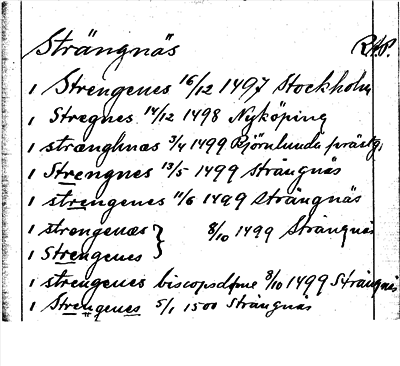 Strängnäs R.A.P.
i Strengenes 16/12 1497 Stockholm
i Stregnes 14/12 1498 Nyköping
i strænghnæs 3/4 1499 Björnlunda prästg.
i Strengnes 13/5 1499 Strängnäs
i strengenes 11/6 1499 Strängnäs
i strengenæs } 8/10 1499 Strängnäs
i Strengenes }
i strengenes biscopsdøme 8/10 1499 Strängnäs
i Strengenes 5/1 1500 Strängnäs